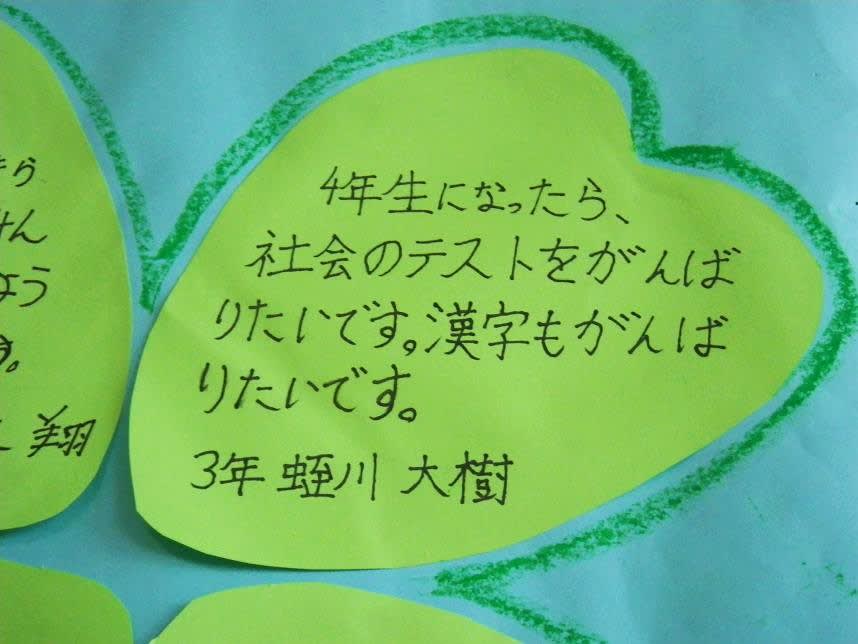 4年生になったら、
社会のテストをがんば
りたいです。漢字もがんば
りたいです。
3年 蛭川 大樹
きら
けん
よう
す。
翔